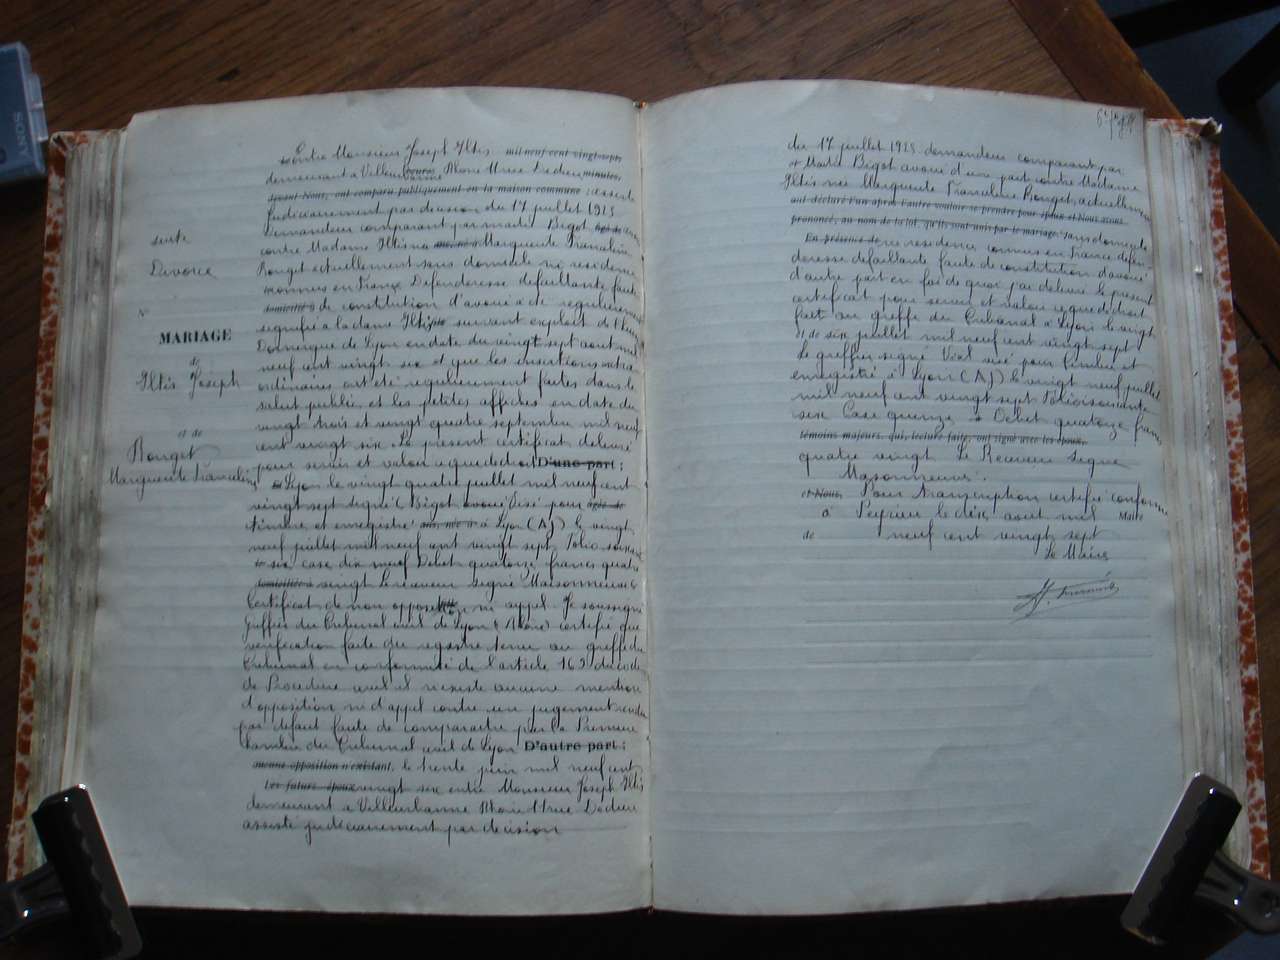 Entre Monsieur Joseph Iltis mil neuf cent vingt sept
demeurant à Villeurbanne Rhône 11 rue Dedieu minutes,
devant Nous, ont comparu publiquement en la maison commune : assisté
Judiciairement par décision du 17 juillet 1925
Demandeur comparant par maitre Bigot
contre Madame Iltis née Marguerite Franceline
Ronget actuellement sans domicile ni résidence
connus en France Defenderesse defaillante faute
domicilié à de constitution d'avoué a été regulierement
signifié à la dame Iltis suivant exploit de
Domergue de Lyon en date du vingt sept aout mil
neuf cent vingt six et que les insertions
ordinaires ont été regulierement faites dans le
salut public et les petites affiches en date du
vingt trois et vingt quatre septembre mil neuf
cent vingt six. Le present certificat délivré
pour servir et valoir ce que de droit D'une part ;
Lyon le vingt quatre juillet mil neuf cent
vingt sept signé Bigot avoué Visé pour âgée de
timbre et enregistré à Lyon (AJ) le vingt
neuf juillet mil neuf cent vingt sept Folio soixante
six case dix neuf Debet quatorze francs quatre
domiciliée à vingt Le receveur signé Maisonneuve
Certificat de non opposition ni appel. Je soussigné
Greffier du Tribunal civil de Lyon (Rhône) certifie que
verification faite du registre tenu au greffe du
Tribunal en conformité de l'article 163 du code
de Procédure civil il n'existe aucune mention
d'opposition ni d'appel contre un jugement rendu
par defaut faute de comparaitre par la Premiere
Chambre du Tribunal civil de Lyon D'autre part ;
aucune opposition n'existant, le trente juin mil neuf cent
Les futurs époux vingt six entre Monsieur Joseph Iltis
demeurant a Villeurbanne Rhône 11 rue Dedieu
assisté judiciairement par decision
suite
Divorce
N°
MARIAGE
de
Iltis Joseph
et de
Ronget
Marguerite Franceline
du 17 juillet 1925 demandeur comparant par
Maitre Bigot avoué d'une part contre Madame
Iltis née Marguerite Franceline Ronget, actuellement
ont déclaré l'un après l'autre vouloir se prendre pour époux et Nous avons
prononcé, au nom de la loi, qu'ils sont unis par le mariage. sans domicile
En présence de ni residence connus en France defen-
deresse defaillante faute de constitution d'avoué
d'autre part en foi de quoi j'ai delivré le present
certificat pour servir et valoir ce que de droit
fait au greffe du Tribunal à Lyon le vingt
et de six juillet mil neuf cent vingt sept
Le greffier signé Vial visé pour timbre et
enregistré à Lyon (AJ) le vingt neuf juillet
mil neuf cent vingt sept Folio soixante
six Case quinze Debet quatorze francs
témoins majeurs, qui, lecture faite, ont signé avec les époux.
quatre vingt Le Receveur signé
Maisonneuve.
et Nous, Pour transcription certifié conforme
à Peyrieu le dix aout mil Maire
de neuf cent vingt sept
Le Maire